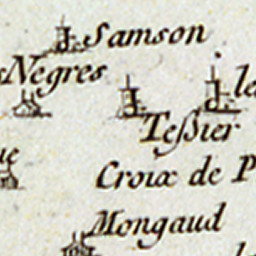 Samson
Negres
le
Teſsier
ue
Croix de P
Mongaud